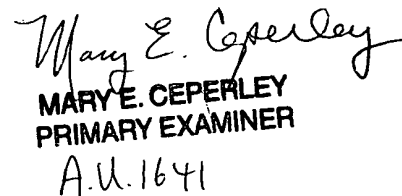 Mary E. Ceperley
MARY E. CEPERLEY
PRIMARY EXAMINER
A.U. 1641